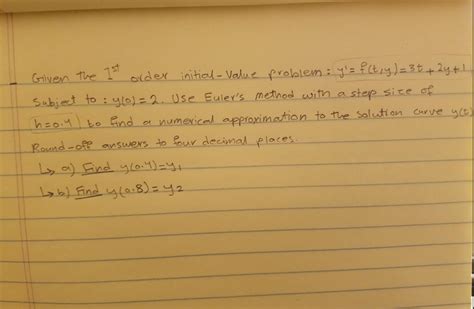 Given the Ist order initial-value problem: y'= f(t,y)=3t+2y+1
Subject to: y(0)=2. Use Euler's method with a step size of
h=0.4 to find a numerical approximation to the solution curve y(t)
Round-off answers to four decimal places.
↳ a) Find y(0.4)=y1
↳ b) Find y(0.8)=y2